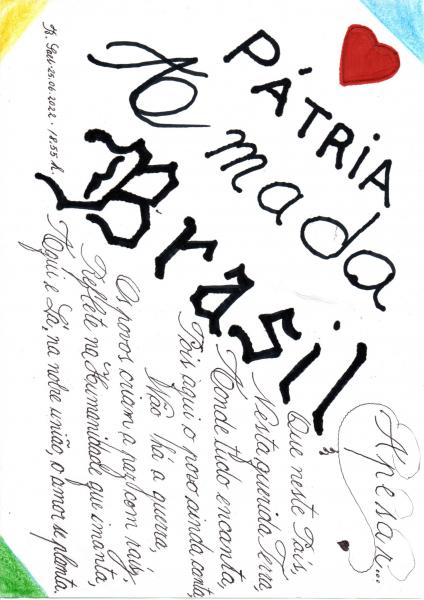 PÁTRIA
Amada
Brasil!
Apesar...
Que neste País,
Nesta querida Terra,
Aonde tudo encanta,
Pois aqui o povo ainda canta,
Não há a guerra,
Os povos criam a paz com raís
Reflete na Humanidade que imanta,
Aqui e Lá, na nobre união, o amor se planta.
25.06.2022 . 18.55 h.